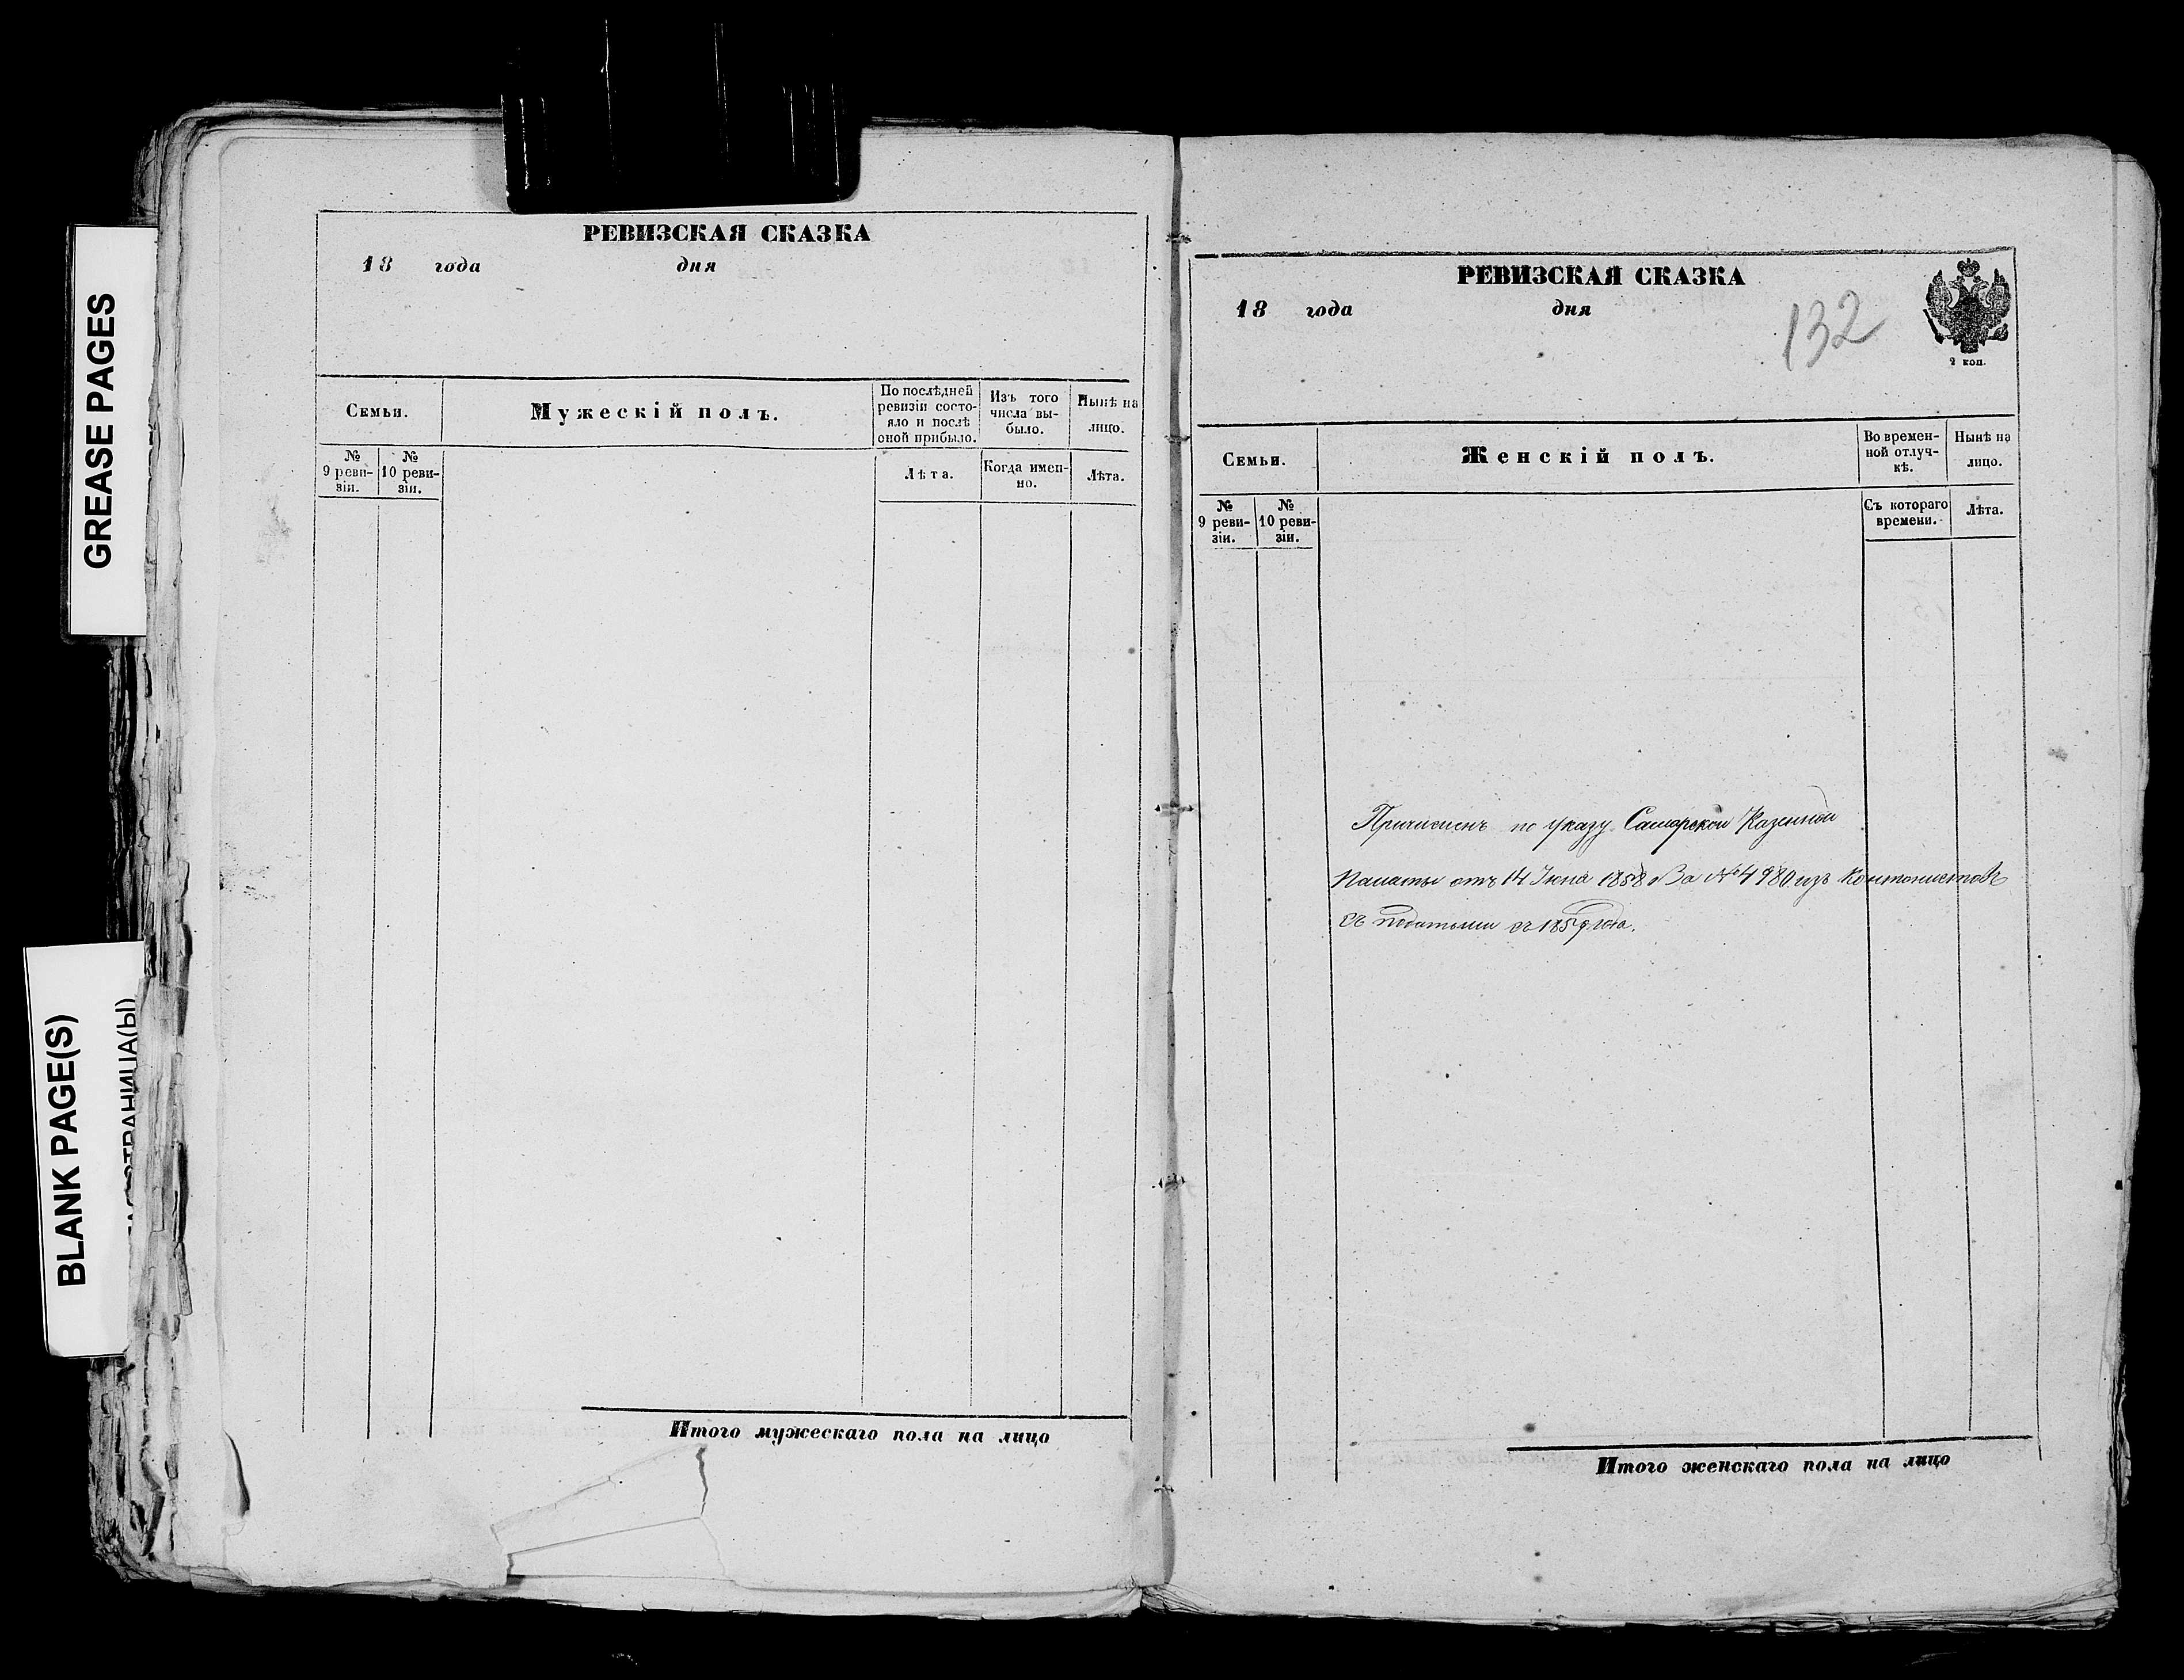 GREASE PAGES
BLANK PAGE(S)
РЕВИЗСКАЯ СКАЗКА
18 года дня
Семьи.
Мужескій полъ.
По послѣдней
ревизіи состо-
яло и послѣ
оной прибыло.
Изъ того
числа вы-
было.
Нынѣ на
лицо.
№
9 реви-
зіи.
№
10 реви-
зіи.
Лѣта.
Когда имен-
но.
Лѣта.
Итого мужескаго пола на лицо
РЕВИЗСКАЯ СКАЗКА
18 года дня
132
2 коп.
Семьи.
Женскій полъ.
Во времен-
ной отлуч-
кѣ.
Нынѣ на
лицо.
№
9 реви-
зіи.
№
10 реви-
зіи.
Съ котораго
времени.
Лѣта.
Причисленъ по указу Самарской Казенной
Палаты отъ 14 Іюня 1858 За № 4980 изъ Кантонистовъ
съ податьми съ 1859 года.
Итого женскаго пола на лицо